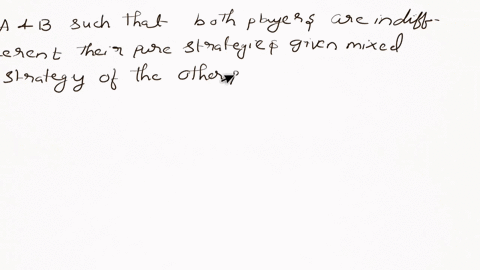 A + B such that both players are indiff-
erent their pure strategies given mixed
strategy of the other